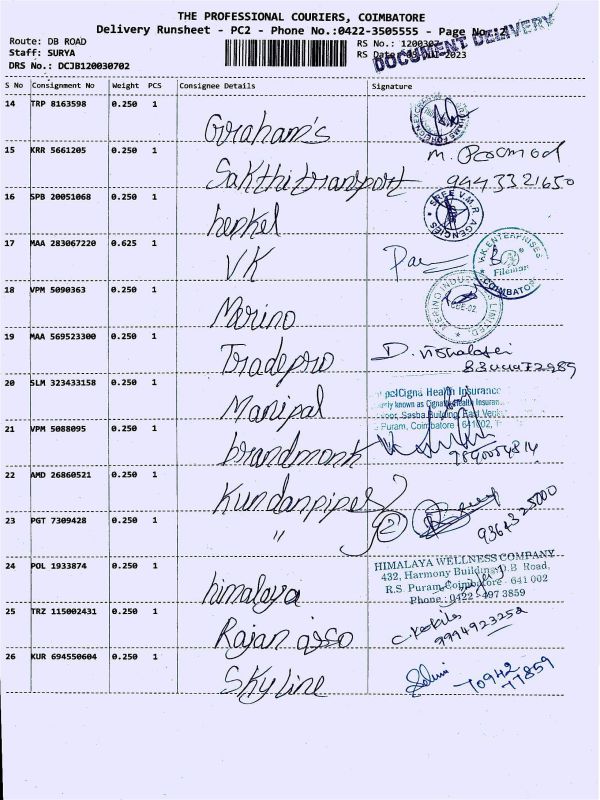 THE PROFESSIONAL COURIERS, COIMBATORE
Delivery Runsheet - PC2 - Phone No.:0422-3505555 - Page No: 2
DOCUMENT DELIVERY
Route: DB ROAD
RS No.:
Staff: SURYA
RS Date: 2023
DRS No.: DCJB120030702
S No Consignment No Weight PCS Consignee Details Signature
14 TRP 8163598 0.250 1 Graham's
15 KRR 5661205 0.250 1 Sakthi transport
9443321650
16 SPB 20051068 0.250 1 henkel
SREE V.M.R AGENCIES
17 MAA 283067220 0.625 1 VK
V.K.ENTERPRISES COIMBATORE
18 VPM 5090363 0.250 1 Merino
MERINO INDUSTRIES LIMITED
CBE-02
19 MAA 569523300 0.250 1 Tradepro
20 SLM 323433158 0.250 1 Manipal
palCigna Health Insurance
Puram, Coimbatore 641002
21 VPM 5088095 0.250 1 brandmonk
22 AMD 26860521 0.250 1 Kundanpipes
23 PGT 7309428 0.250 1 " 2
9364325000
24 POL 1933874 0.250 1 himalaya
HIMALAYA WELLNESS COMPANY
432, Harmony Building, D.B Road,
R.S. Puram, Coimbatore - 641 002
Phone: 0422 - 497 3859
25 TRZ 115002431 0.250 1 Rajan asso
9994923252
26 KUR 694550604 0.250 1 Skyline
70942
77859